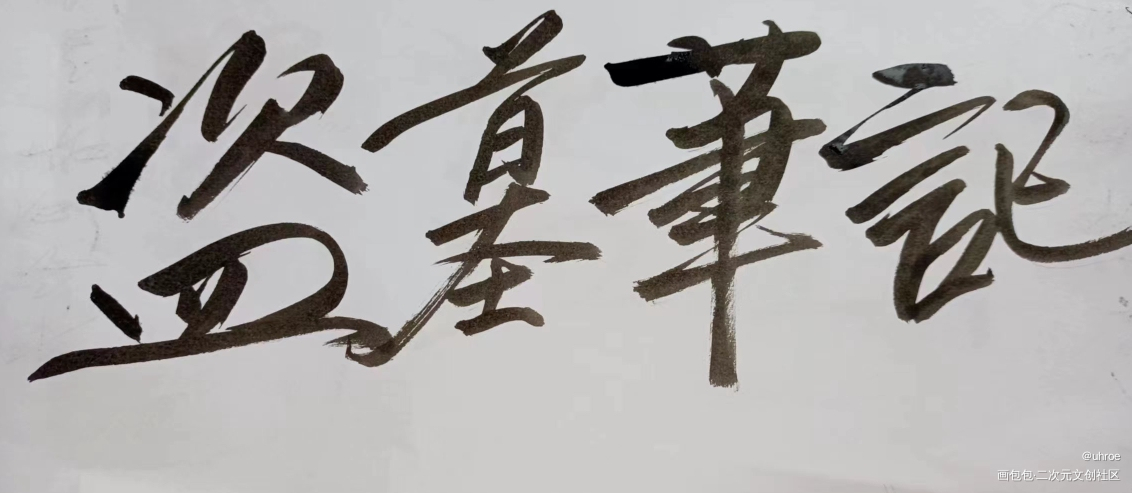 盗墓筆記
@uhroe
画包包·二次元文创社区